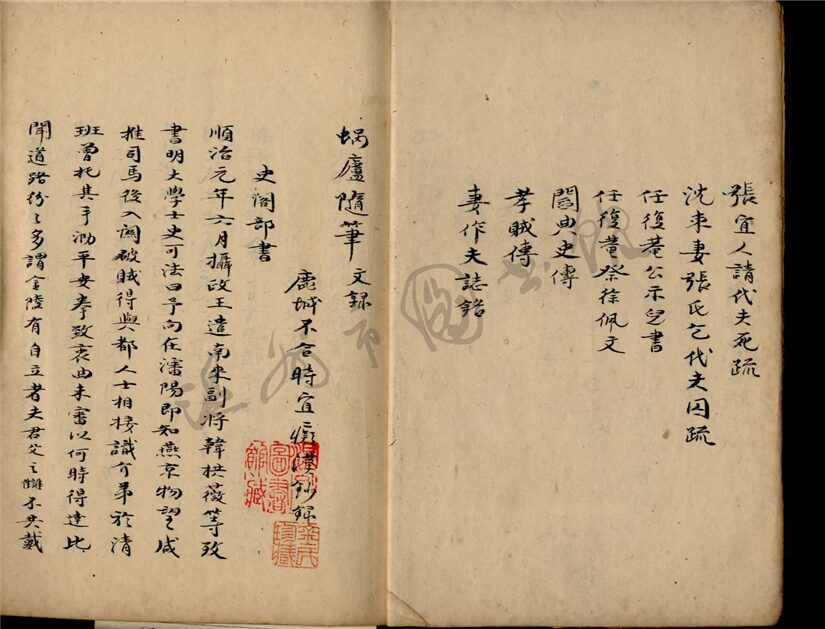 張宜人請代夫死疏
沈束妻張氏乞代夫囚疏
任復菴公示兒書
任復菴祭徐佩文
閻典史傳
孝賊傳
妻作夫誌銘
蝸廬隨筆 文録
鹿城不合時宜 漢鈔録
史閣部書
順治元年六月攝政王遣南來副將韓拱薇等致
書明大學士史可法曰予向在瀋陽即知燕京物望咸
推司馬後入關破賊得與都人士相接識介弟於清
班曾托其手泐平安奉致衷曲未審以何時得達比
聞道路紛〻多謂金陵有自立者夫君父之讎不共戴